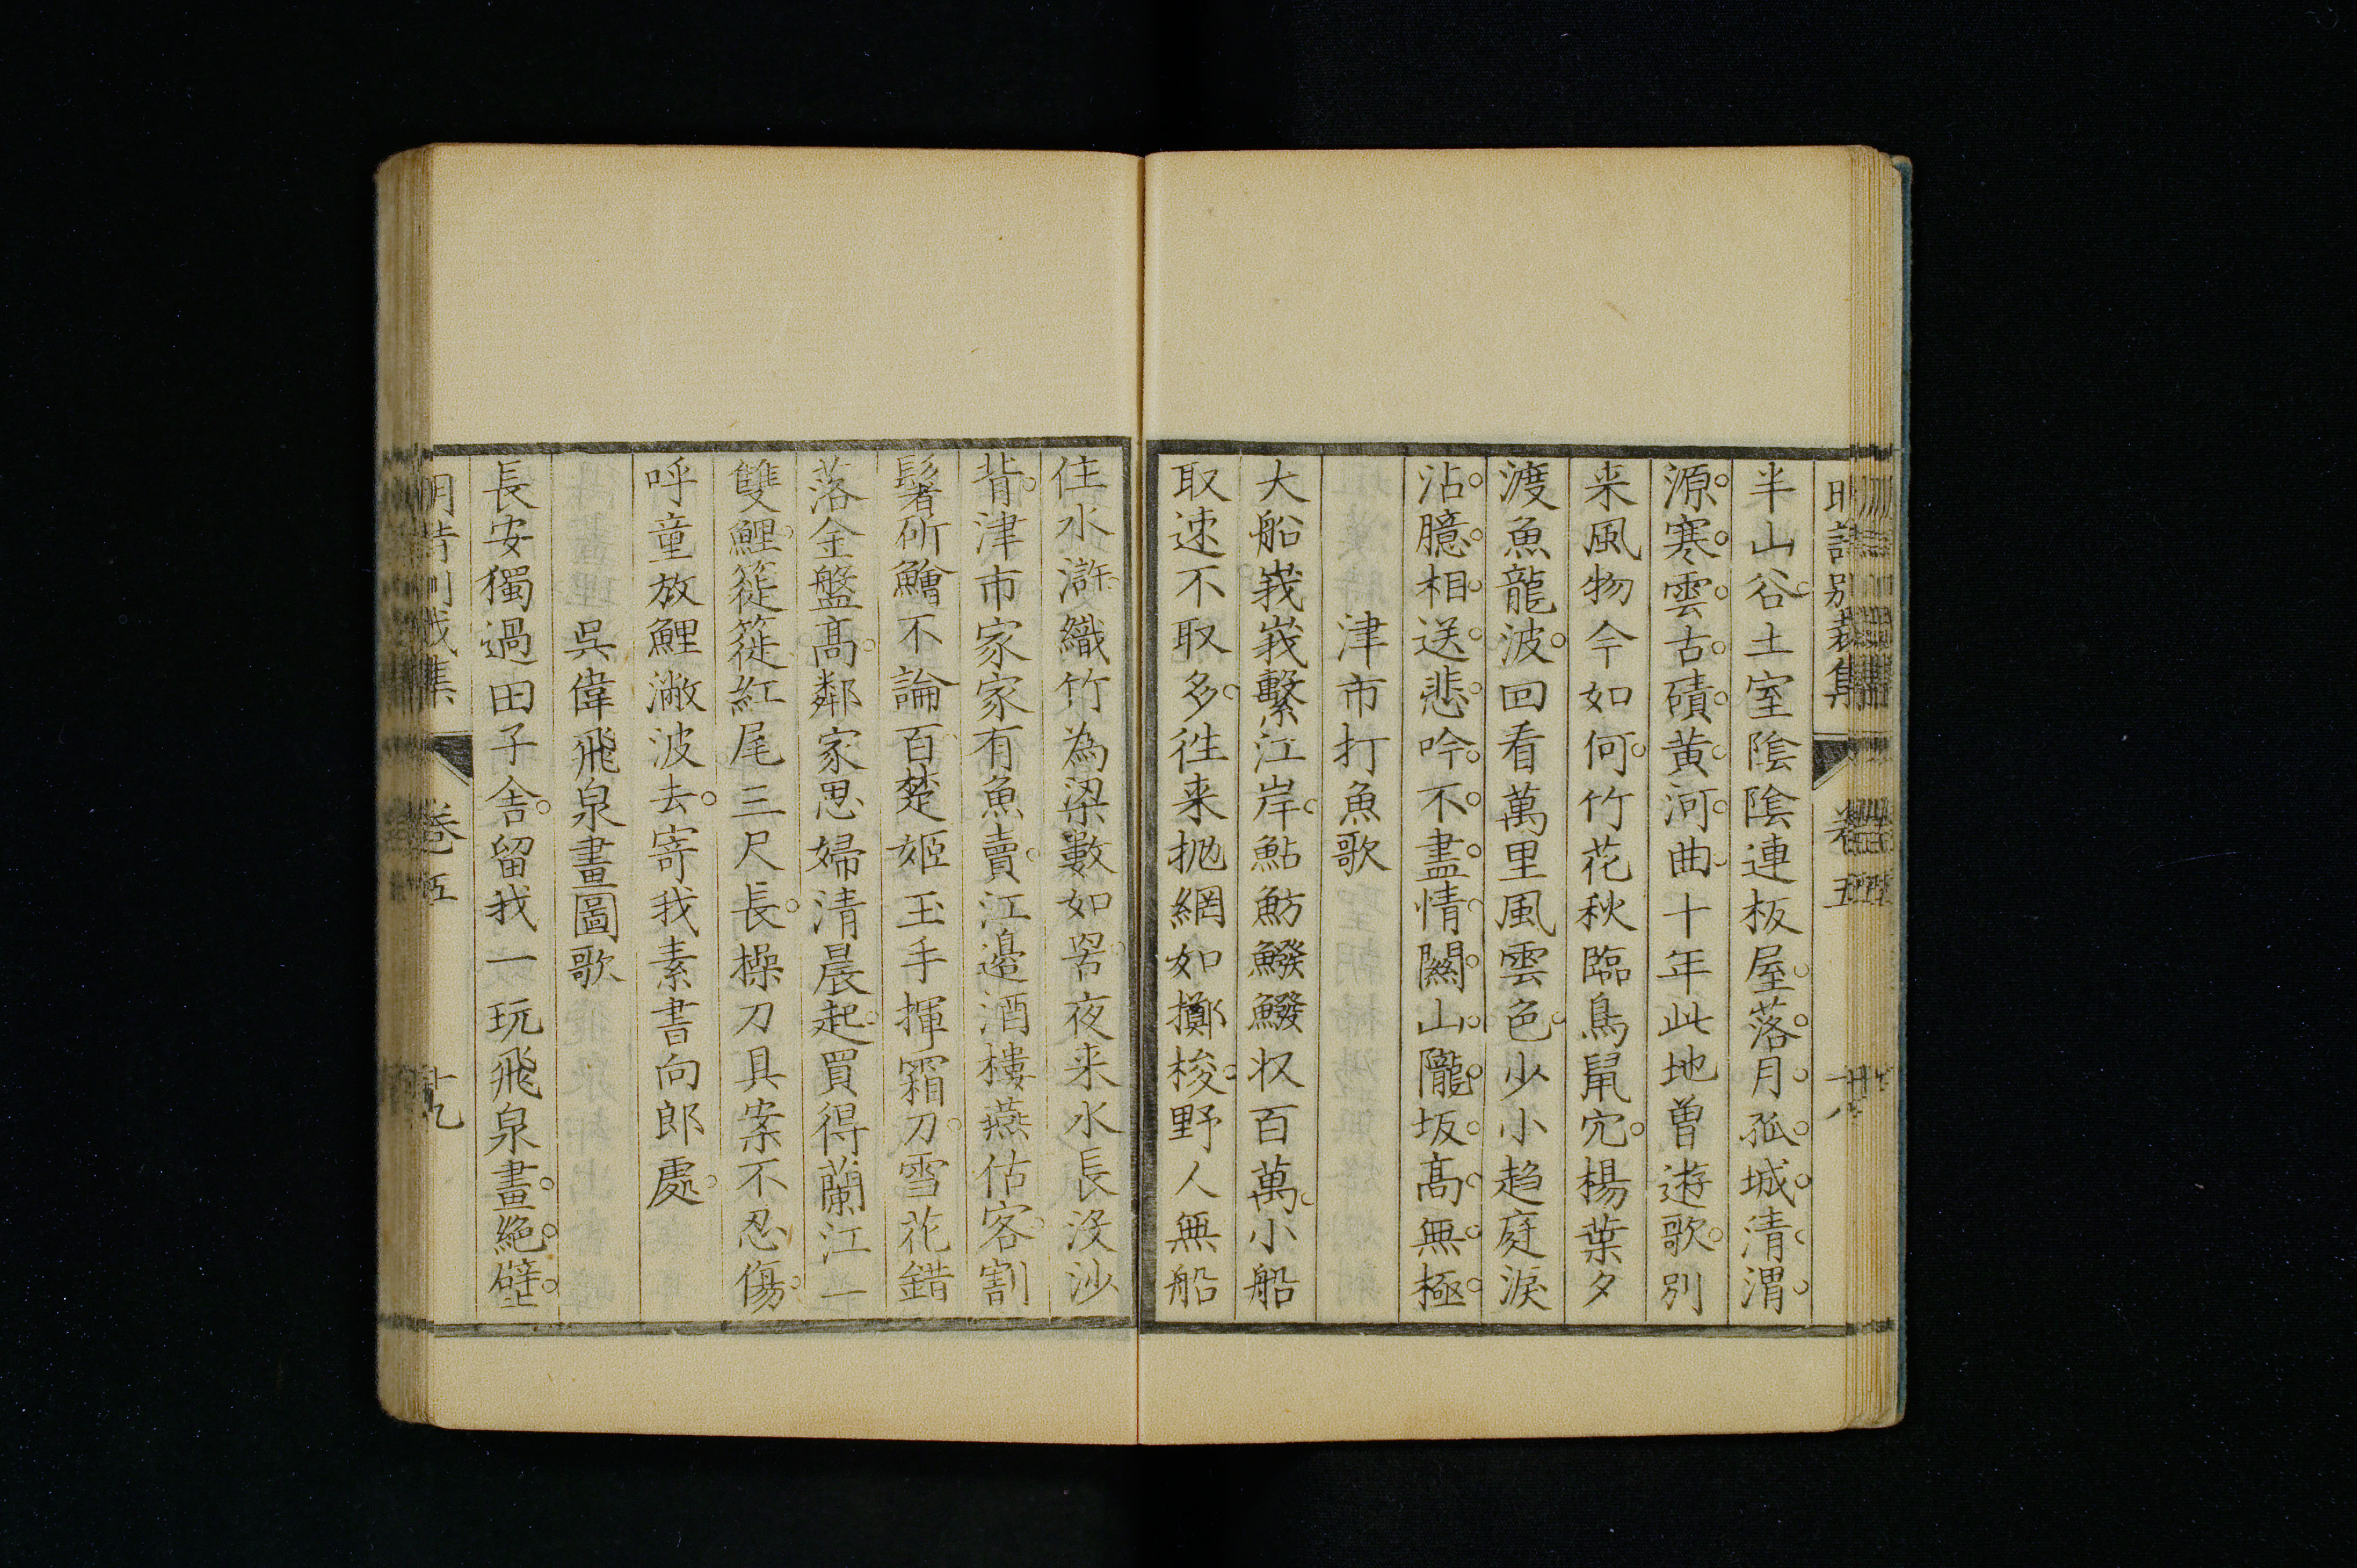 明詩別裁集 卷五 十八
半山谷土室陰陰連板屋落月孤城清渭
源寒雲古磧黃河曲十年此地曾遊歌別
来風物今如何竹花秋臨鳥鼠穴楊葉夕
渡魚龍波回看萬里風雲色少小趨庭淚
沾臆相送悲吟不盡情關山隴坂高無極
津市打魚歌
大船峩峩繫江岸鮎魴鱍鱍收百萬小船
取速不取多往来拋網如擲梭野人無船
住水滸織竹為梁數如罟夜来水長沒沙
背津市家家有魚賣江邊酒樓燕估客割
鬐斫鱠不論百楚姬玉手揮霜刀雪花錯
落金盤高鄰家思婦清晨起買得蘭江一
雙鯉簁簁紅尾三尺長操刀具案不忍傷
呼童放鯉潎波去寄我素書向郎處
吳偉飛泉畫圖歌
長安獨過田子舍留我一玩飛泉畫絕壁
明詩別裁集 卷五 十九